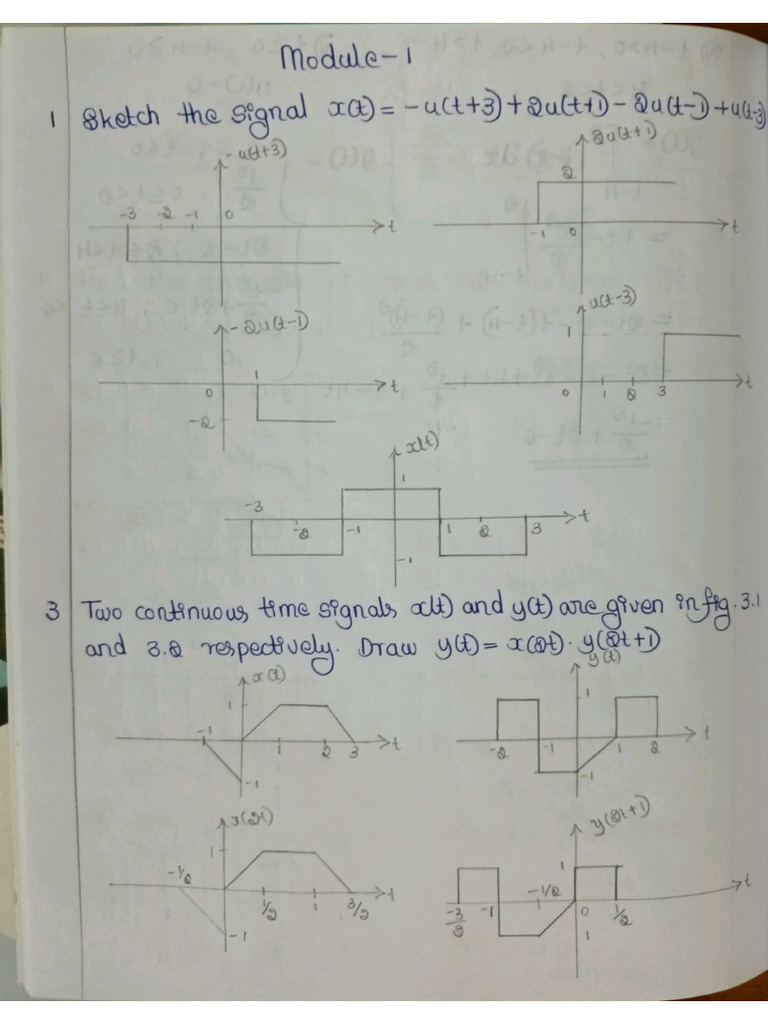 Module-1
1 Sketch the signal x(t) = -u(t+3)+2u(t+1)-2u(t-1)+u(t-3)
-u(t+3) 2u(t+1)
-3 -2 -1 0 t
2 -1 0 t
-2u(t-1) u(t-3)
1 0 t -2
1 0 1 2 3 t
x(t)
1
-3 -2 -1 1 2 3 t
-1
3 Two continuous time signals x(t) and y(t) are given in fig. 3.1
and 3.2 respectively. Draw y(t) = x(2t) · y(2t+1)
x(t) y(t)
1 -1 1 2 3 t -1
1 -2 -1 1 2 t -1
x(2t) y(2t+1)
1 -1/2 1/2 1 3/2 t -1
1 -3/2 -1 -1/2 0 1/2 t 1